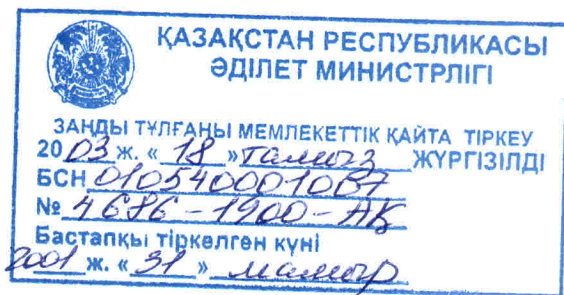 ҚАЗАҚСТАН РЕСПУБЛИКАСЫ
ӘДІЛЕТ МИНИСТРЛІГІ
ЗАҢДЫ ТҰЛҒАНЫ МЕМЛЕКЕТТІК ҚАЙТА ТІРКЕУ
20 03 ж. « 18 » тамыз ЖҮРГІЗІЛДІ
БСН 010540001087
№ 4686-1900-АҚ
Бастапқы тіркелген күні
2001 ж. « 31 » мамыр